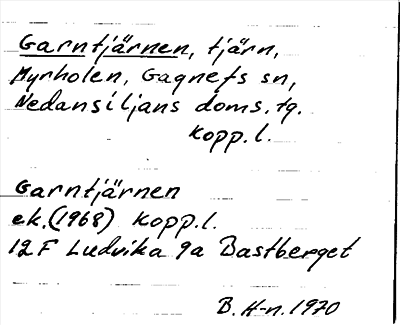 Garntjärnen, tjärn,
Myrholen, Gagnefs sn,
Nedansiljans doms. tg.
Kopp.l.
Garntjärnen
ek.(1968) Kopp.l.
12F Ludvika 9a Bastberget
B. H-n. 1970